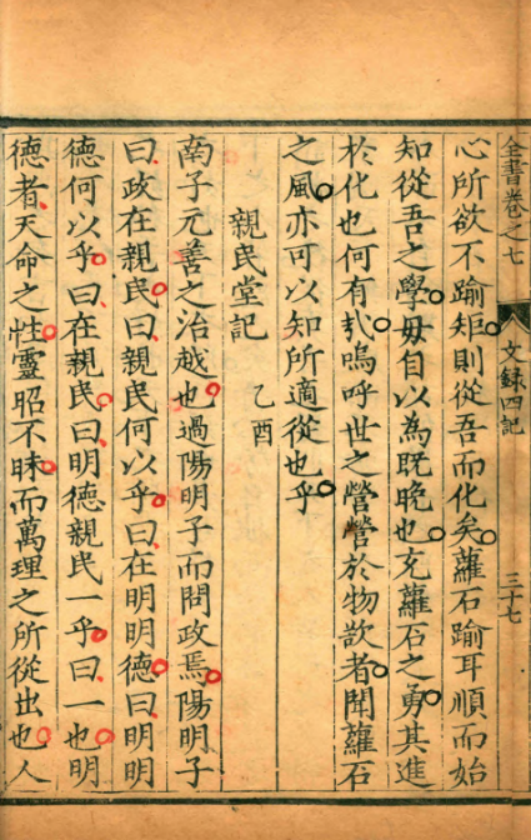 全書卷之七 文錄四記 三十七
心所欲不踰矩則從吾而化矣蘿石踰耳順而始
知從吾之學毋自以為既晚也充蘿石之勇其進
於化也何有哉嗚呼世之營營於物欲者聞蘿石
之風亦可以知所適從也乎
親民堂記 乙酉
南子元善之治越也過陽明子而問政焉陽明子
曰政在親民曰親民何以乎曰在明明德曰明明
德何以乎曰在親民曰明德親民一乎曰一也明
德者天命之性靈昭不昧而萬理之所從出也人